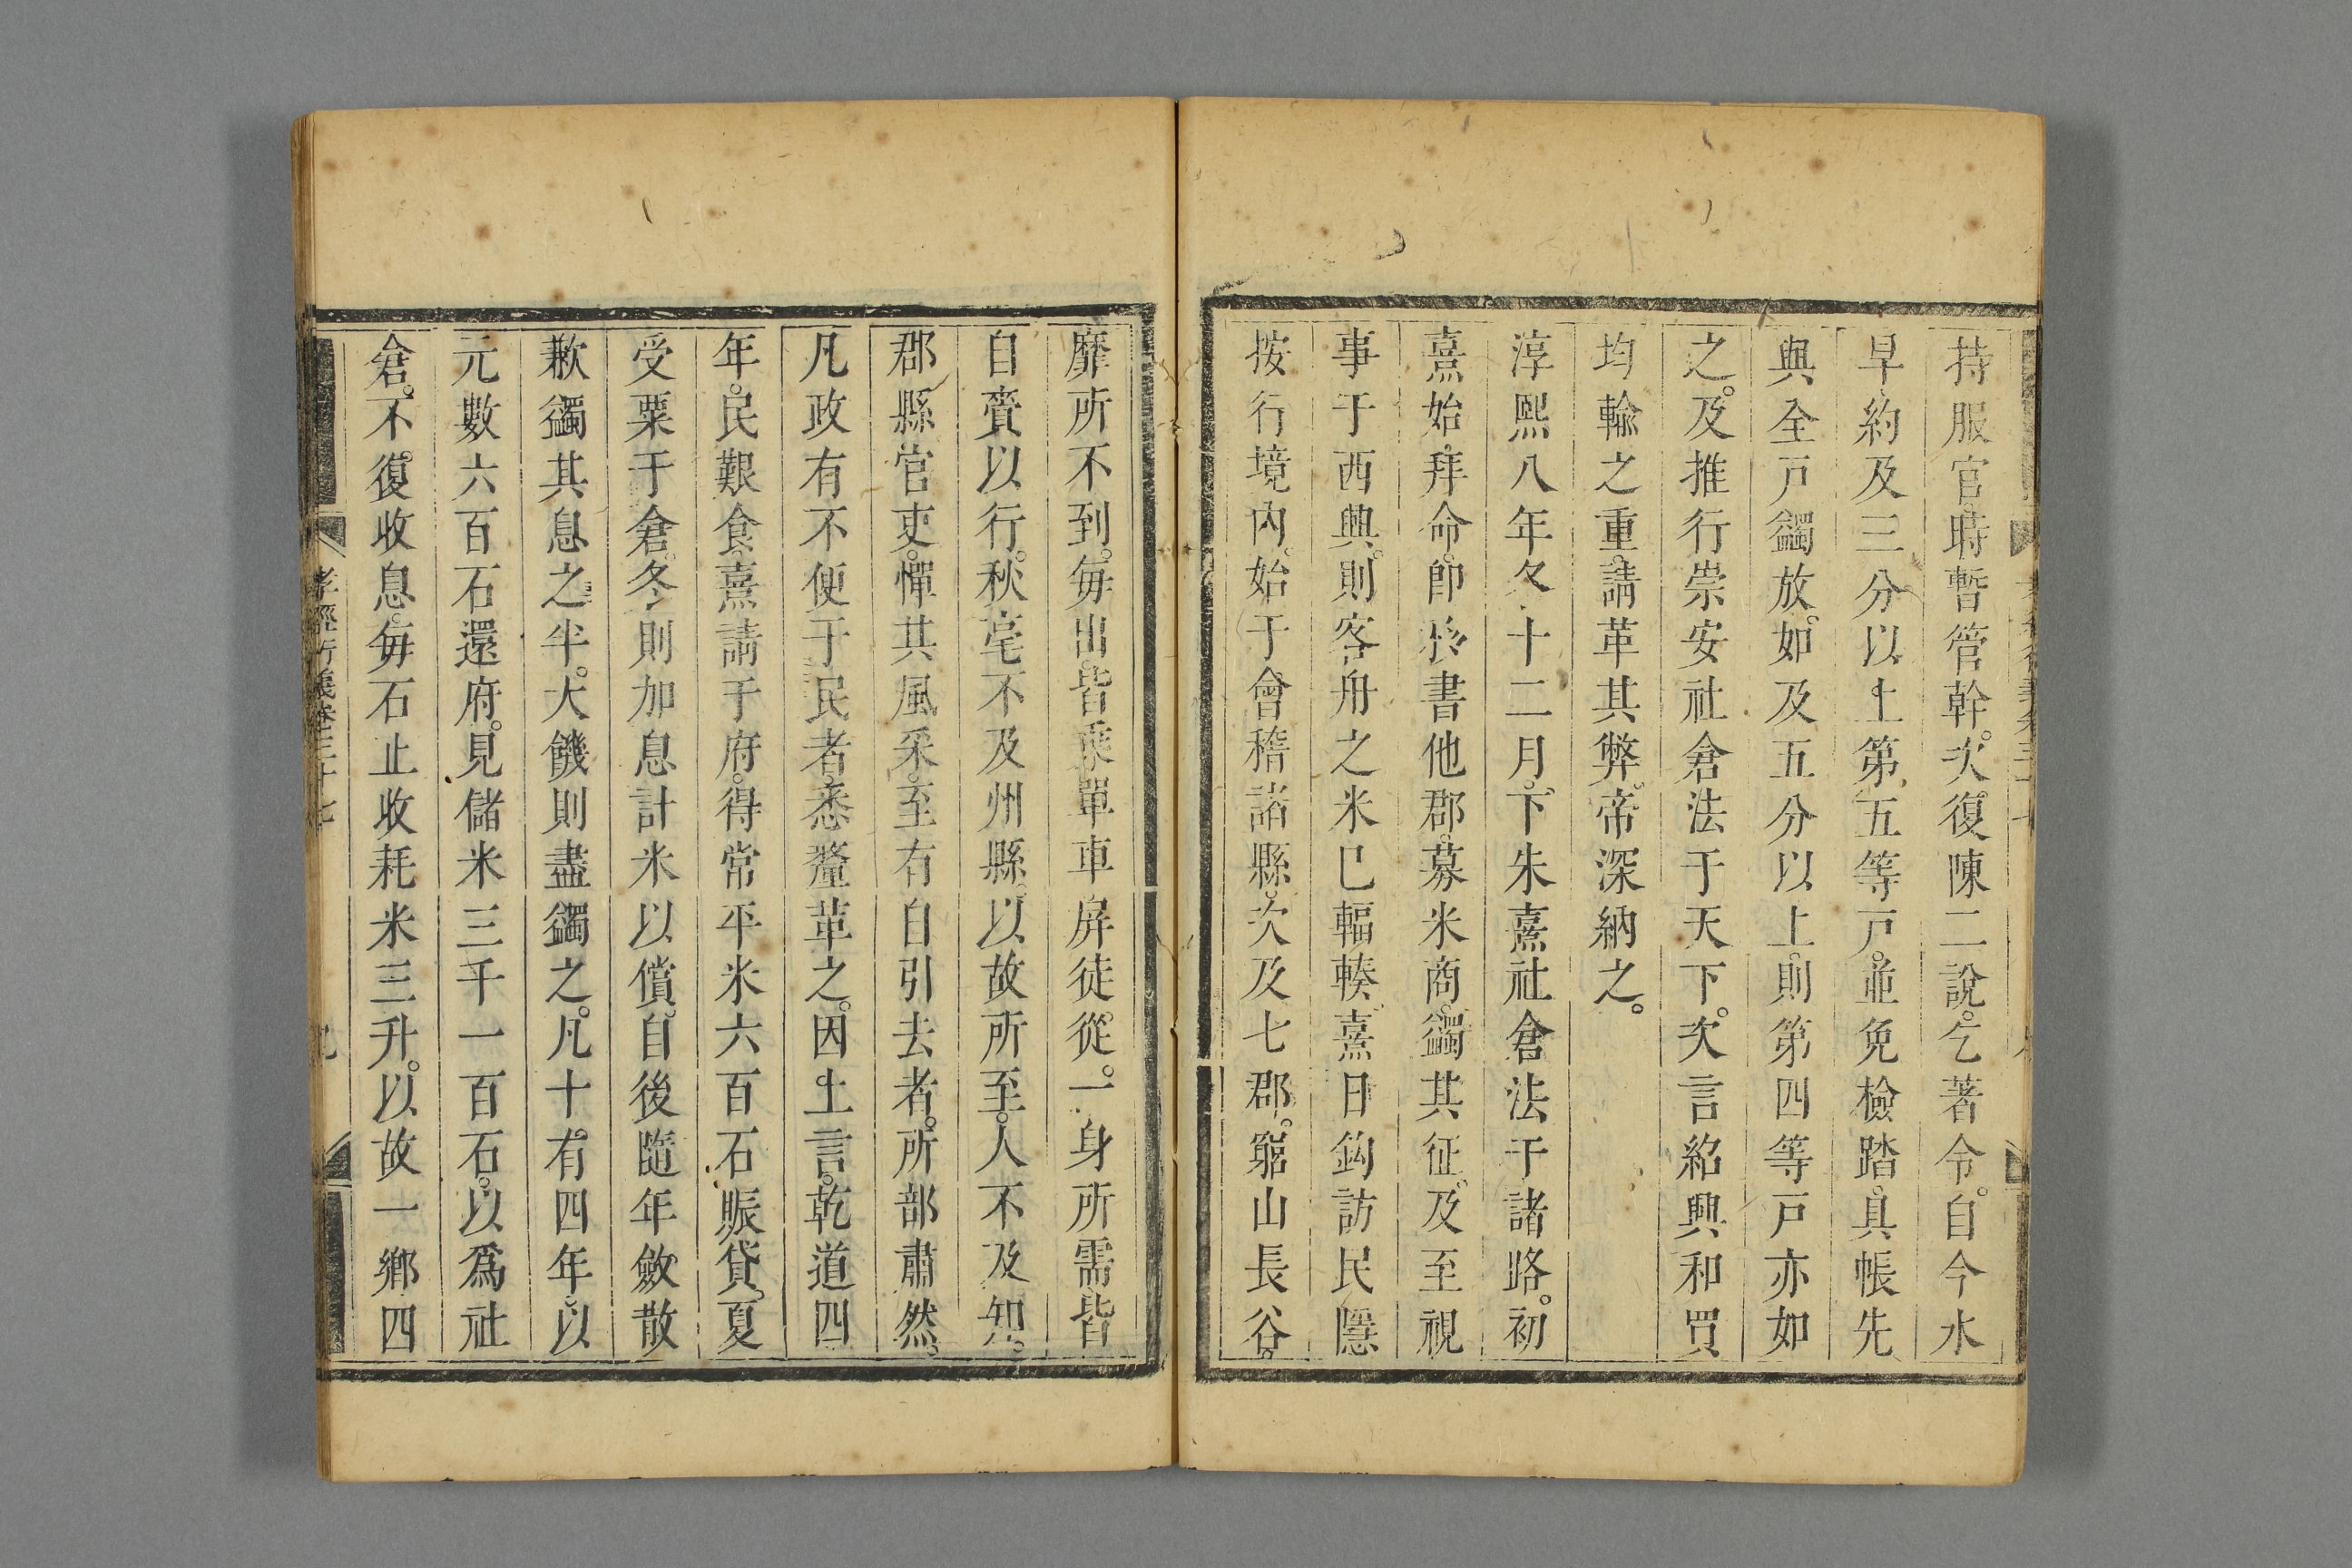 持服官。時暫管幹。次復陳二說。乞著令。自今水
旱約及三分以上。第五等戸。並免檢踏。具帳先
與全戸蠲放。如及五分以上。則第四等戸亦如
之。及推行崇安社倉法于天下。次言紹興和買
均輸之重。請革其弊。帝深納之。
淳熙八年冬十二月。下朱熹社倉法于諸路。初
熹始拜命。即移書他郡。募米商。蠲其征。及至視
事于西興。則客舟之米巳輻輳。熹日鈎訪民隱
按行境內。始于會稽諸縣。次及七郡。窮山長谷。
靡所不到。毎出。皆乘單車屏徒從。一身所需皆
自賫以行。秋毫不及州縣。以故所至。人不及知。
郡縣官吏。憚其風采。至有自引去者。所部肅然。
凡政有不便于民者。悉釐革之。因上言。乾道四
年。民艱食。熹請于府。得常平米六百石賑貸。夏
受粟于倉。冬則加息計米以償。自後隨年斂散
歉蠲其息之半。大饑則盡蠲之。凡十有四年。以
元數六百石還府。見儲米三千一百石。以爲社
倉。不復收息。毎石止收耗米三升。以故一鄉四
孝經衍義卷三十七